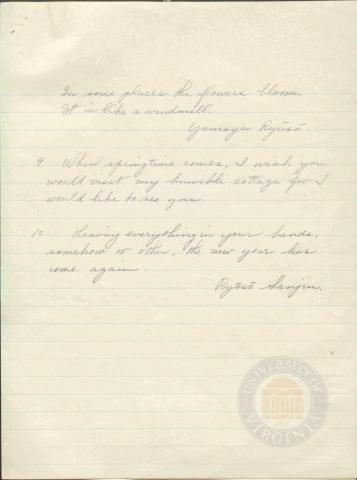 In some places the flowers bloom.
It is like a windmill.
Yamaya Ryōsō.
9 When springtime comes, I wish you
would visit my humble cottage for I
would like to see you.
10 Leaving everything in your hands,
somehow or other, the new year has
come again.
Ryōsō Sanjin.
UNIVERSITY OF VIRGINIA